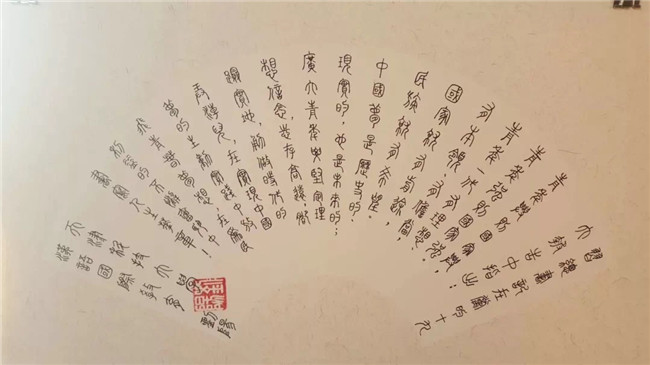 習總書記在黨的十九
大報告中指出
青年興則國家興，
青年強則國家強。
青年一代有理想，
有本領，有擔當，
國家就有前途，
民族就有希望。
中國夢是歷史的、
現實的，也是未來的；
廣大青年要堅定理
想信念，志存高遠，腳
踏實地，勇做時代的
弄潮兒，在實現中國
夢的生動實踐中放
飛青春夢想，在為人民
利益的不懈奮鬥中
書寫人生華章！